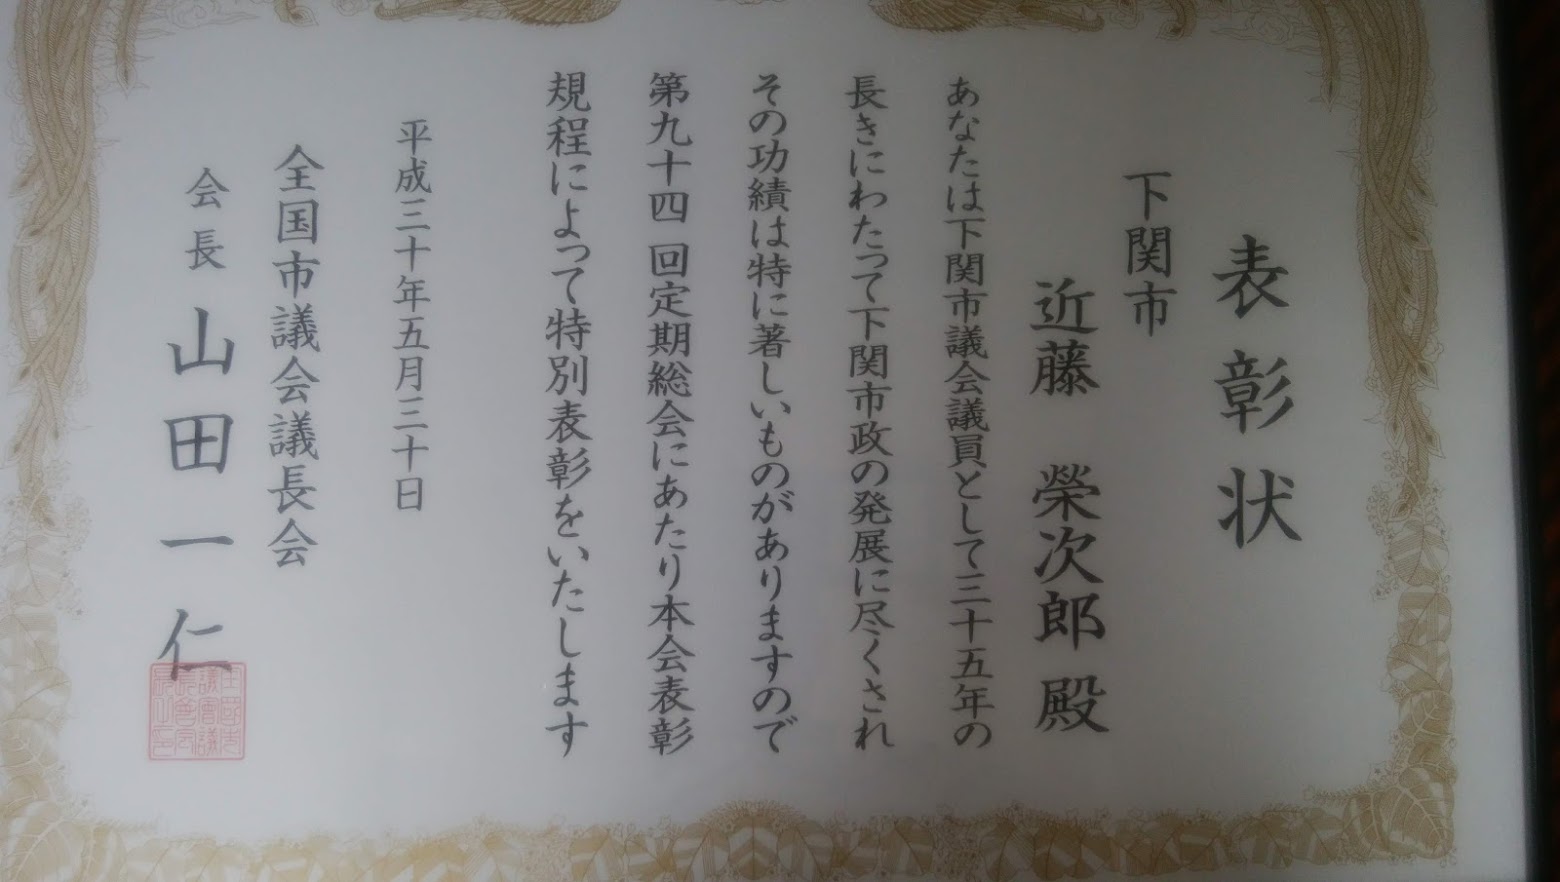 表彰状
下関市
近藤 榮次郎 殿
あなたは下関市議会議員として三十五年の
長きにわたって下関市政の発展に尽くされ
その功績は特に著しいものがありますので
第九十四回定期総会にあたり本会表彰
規程によって特別表彰をいたします
平成三十年五月三十日
全国市議会議長会
会長 山田一仁